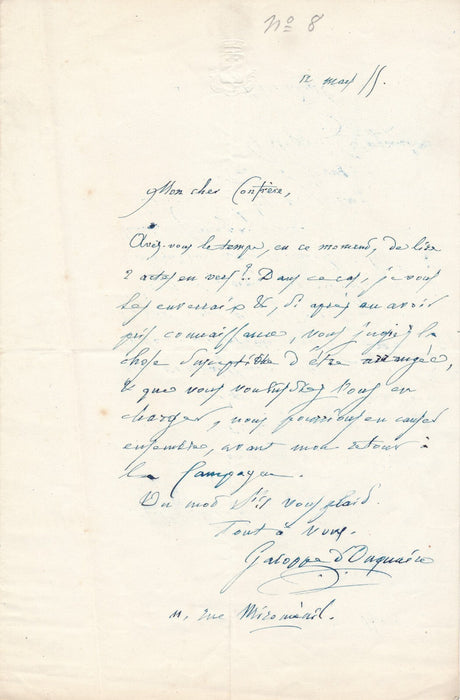 No 8
12 mars 55.
Mon cher Confrère,
Avez-vous le temps, en ce moment, de lire
2 actes en vers? Dans ce cas, je vous
les enverrais &, si après en avoir
pris connaissance, vous jugiez la
chose susceptible d'être arrangée,
& que vous voulussiez vous en
charger, nous pourrions en causer
ensemble, avant mon retour à
la Campagne.
Un mot s'il vous plait.
Tout à vous.
Galoppe d'Onquaire
11, rue Miroménil.